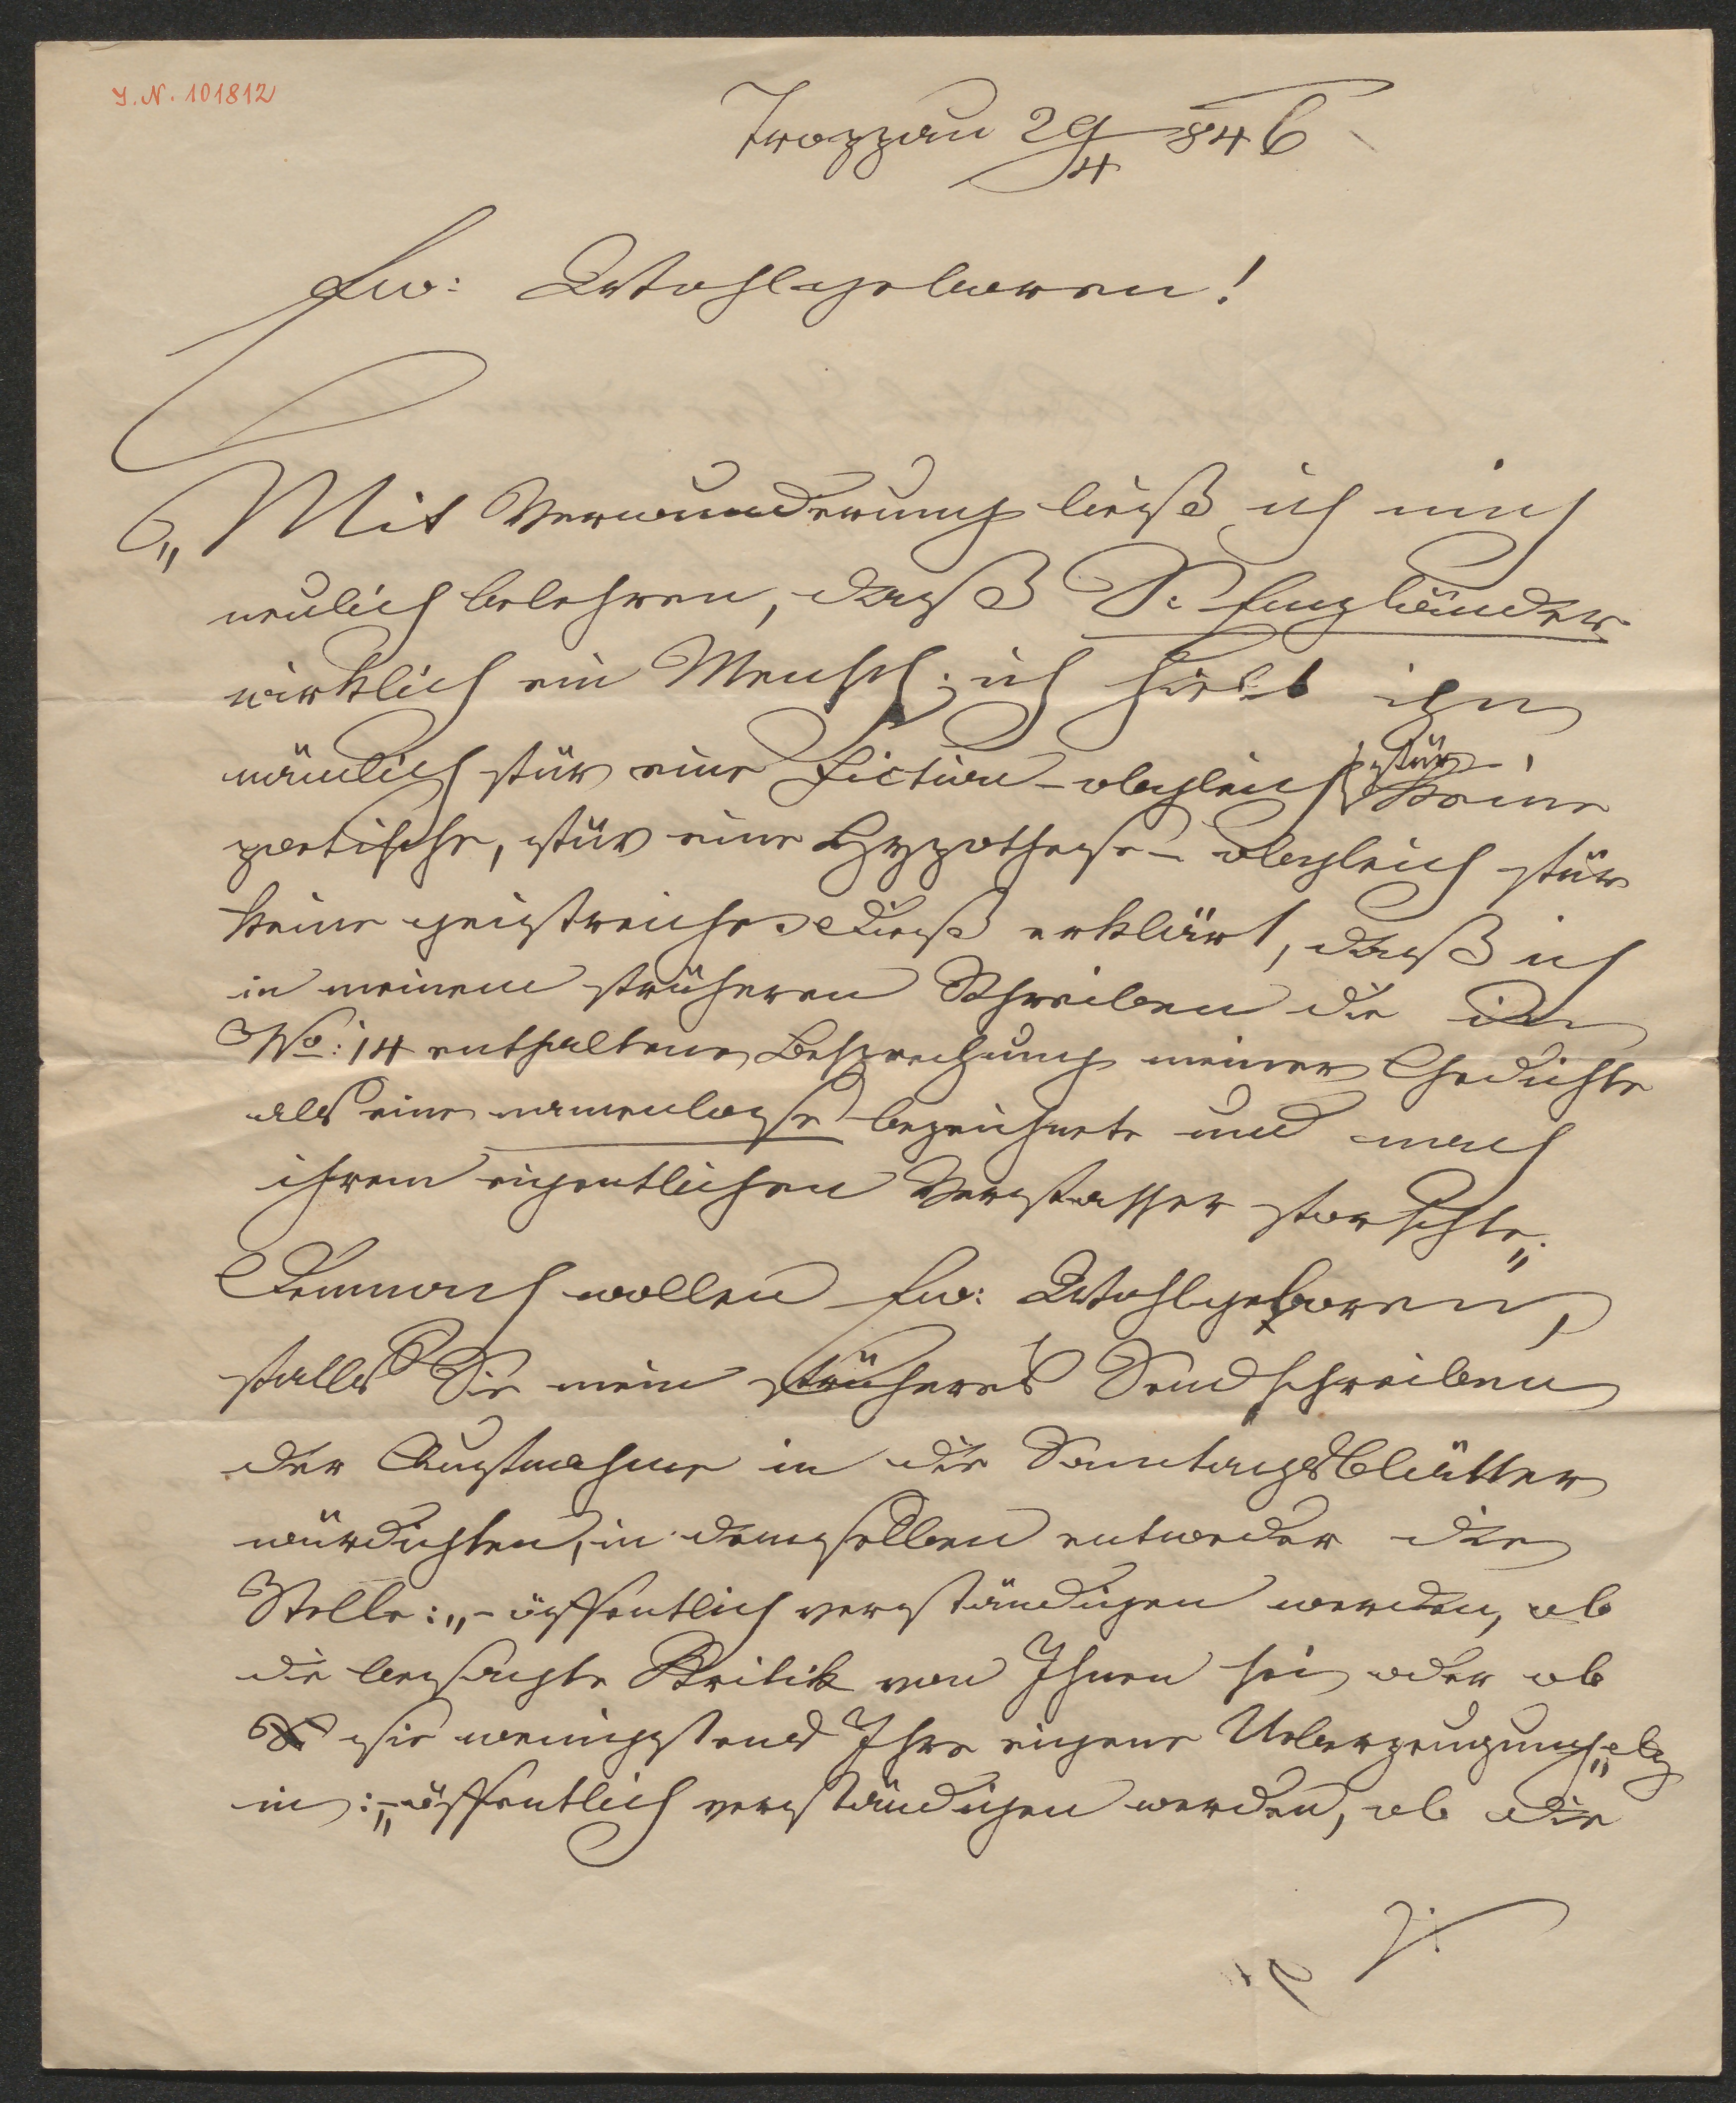 I. N. 101812
Troppau 29/4 846
Ew: Wohlgeboren!
„Mit Verwunderung ließ ich mich
neulich belehren, daß S. Engländer
wirklich ein Mensch; ich hielt ihn
nämlich für eine Fiction – obgleich für keine
poetische, für eine Hypothese – obgleich für
keine geistreiche. Dieß erklärt, daß ich
in meinem früheren Schreiben die in
No: 14 enthaltene Besprechung meiner Gedichte
als eine namenlose bezeichnete und nach
ihrem eigentlichen Verfasser forschte.„
Demnach wollen Ew: Wohlgeboren,
falls Sie mein früheres Sendschreiben
der Aufnahme in die Sonntagsblätter
würdigten, in demselben entweder die
Stelle: „– öffentlich verständigen werden, ob
die besagte Kritik von Ihnen sei oder ob
sie wenigstens Ihre eigene Ueberzeugung„ etz
in: „– öffentlich verständigen werden, ob die